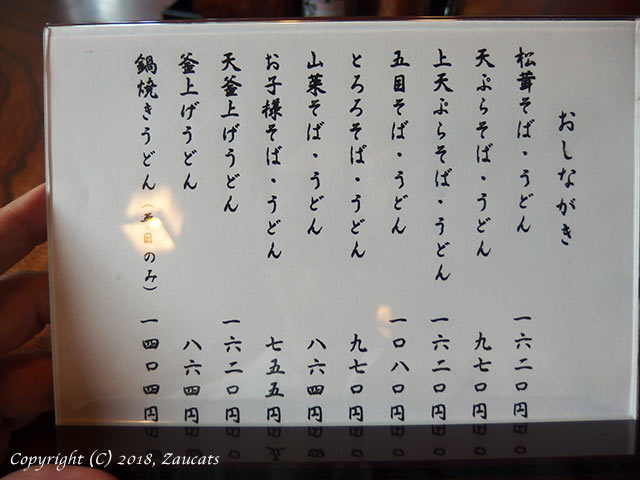 おしながき
松茸そば・うどん 一六二〇円
天ぷらそば・うどん 九七〇円
上天ぷらそば・うどん 一六二〇円
五目そば・うどん 一〇八〇円
とろろそば・うどん 九七〇円
山菜そば・うどん 八六四円
お子様そば・うどん 七五五円
天釜上げうどん 一六二〇円
釜上げうどん 八六四円
鍋焼きうどん（平日のみ） 一四〇四円
Copyright (C) 2018, Zaucats